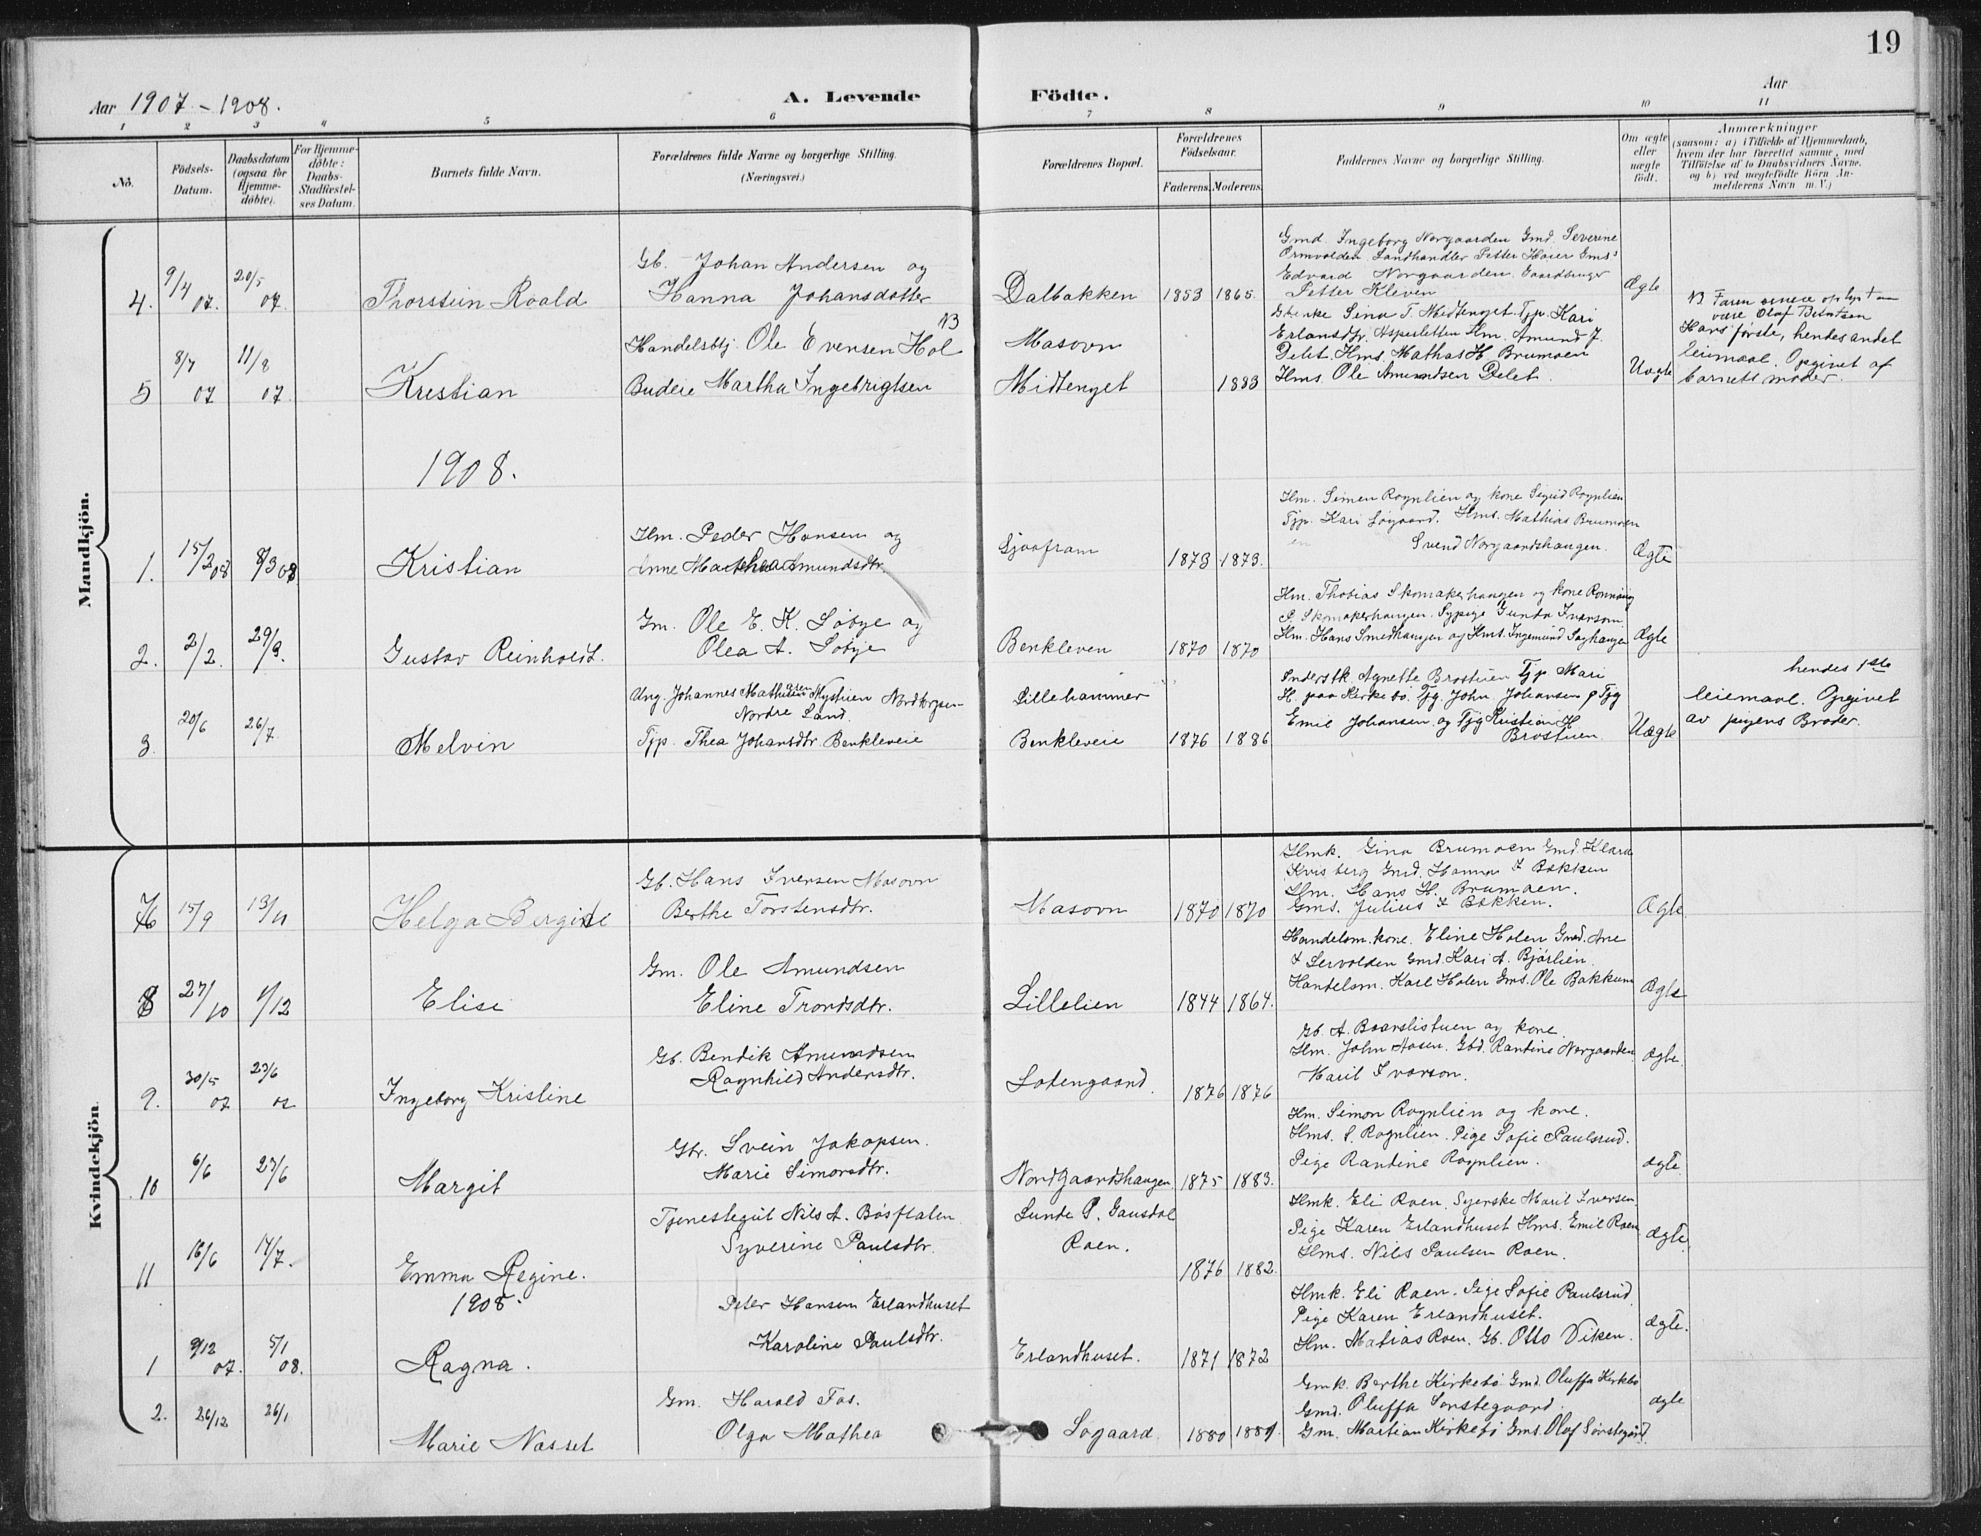 19
Aar 1907 - 1908.
A. Levende Födte.
Aar
1 2 3 4 5 6 7 8 9 10 11
No.
Födsels-Datum.
Daabsdatum (ogsaa for Hjemme-döbte).
For Hjemme-döbte: Daabs-Stadfæstel-ses Datum.
Barnets fulde Navn.
Forældrenes fulde Navne og borgerlige Stilling.
(Næringsvei.)
Forældrenes Bopæl.
Forældrenes Födselsaar.
Faderens. Moderens.
Faddernes Navne og borgerlige Stilling.
Om ægte eller uægte födt.
Anmærkninger
(saasom: a) i Tilfælde af Hjemmedaab, hvem der har forrettet samme, med Tilföielse af to Daabsvidners Navne. og b) ved uægtefödte Börn Anmelderens Navn m. V.)
Mandkjön.
4. 9/4 07. 20/5 07 Thorstein Roald
Gb. Johan Andersen og
Hanna Johansdatter
Dalbakken 1853 1865.
Gmd. Ingeborg Norgaarden Gmd. Severine
Landhandler Petter
Edvard Norgaarden. Gaardbruger
Petter Kleven
Ægte
5 8/7 07 11/8 07. Kristian
NB
Handelsbtj. Ole Evensen Hol
Budeie Martha Ingebrigtsen
Masovn
Midtenget 1883
Sina T. Midtenget. Tjp. Kari
Hm. Amund J.
Delet. Hms. Mathas H. Brumoen
Hms. Ole Amundsen Delet.
Uægte
NB Faren senere
være Olaf
Hans første, hendes andet
leiemaal. Opgivet af
barnets moder.
1908.
1. 15/2 08 8/3 08 Kristian
Hm. Peder Hansen og
Anne Amundsdtr.
1873 1873.
Hm. Simen Rognlien og kone Sigrid Rognlien
Tjp. Kari Søgaard. Hms. Mathias Brumoen
Svend Norgaardshaugen.
Ægte
2. 2/2. 29/3. Gustav Reinholdt.
Gm. Ole E. K. Løbye og
Olea A. Løbye
Benkleven 1870 1870
Hm. Thobias Skomakerhaugen og kone Rønnaug
P. Skomakerhaugen. Sypige Gunda Iverson.
Hm. Hans Smedhaugen og Hms. Ingemund Saghaugen
Ægte
3. 20/6 26/7 Melvin
Ung. Johannes Mathisen Nystuen
Nordre Land.
Tjp. Thea Johansdtr. Benkleveie
Lillehammer
Benkleveie 1876 1886
Agnette Brostuen Tjp Mari
H. paa Kirkebö. Tjg. John Johansen
Emil Johansen og Tjg Kristian H.
Brostuen.
Uægte
hendes 1ste
leiemaal. Opgivet
av pigens Broder.
Kvindekjön.
7 15/9 13/11 Helga Bergitte
Gb. Hans Iversen Masovn
Berthe Torstensdtr.
Masovn 1870 1870
Hmk. Gina Brumoen Gmd. Klara
Kvisberg Gmd. Hanna I Bakken
Hm. Hans H. Brumoen.
Gms. Julius I Bakken.
Ægte
8 27/10 1/12 Elise
Gm. Ole Amundsen
Eline Trondsdtr.
Lillelien 1844 1864.
Handelsm. kone. Eline Holen Gmd. Ane
Gmd. Kari A. Bjørlien.
Handelsm. Karl Holen Gms. Ole Bakkum
Ægte
9. 30/5 07 23/6 Ingeborg Kristine
Gb. Bendik Amundsen
Ragnhild Andersdtr.
1876 1876
Gb. A. og kone.
Hm. John Aasen. Gbd. Rantine Norgaarden
Marit Ivarson.
Ægte.
10 6/6 23/6 Margit
Svein Jakopsen.
Marie Simonsdtr.
Nordgaardshaugen. 1875 1883.
Hm. Simon Rognlien og kone.
Hms. S. Rognlien. Pige Sofie Paulsrud.
Pige Rantine Rognlien.
Ægte
11 16/6 14/7. Emma Regine.
Tjenestegut Nils A. Bøsflaten
Syverine Paulsdtr.
Sunde P. Gausdal
Roen. 1876 1882.
Hmk. Eli Roen. Syerske Marit Iversen
Pige Karen Erlandhuset Hms. Emil Roen
Hms. Nils Paulsen Roen.
Ægte.
1908.
1 9/12 07. 5/1 08. Ragna.
Peter Hansen Erlandhuset
Karoline Paulsdtr.
Erlandhuset. 1871 1872
Hmk. Eli Roen. Pige Sofie Paulsrud
Pige Karen Erlandhuset.
Hm. Matias Roen. Gb. Otto Viken.
ægte.
2. 26/12 26/1 Marie Nasset
Gm. Harald
Olga Mathea
Søgaard 1880 1881.
Gmk. Berthe Kirkebø Gmd. Oluffa Kirkebø
Gmd. Oluffa
Gm. Martian Kirkebø Gms. Olaf
ægte